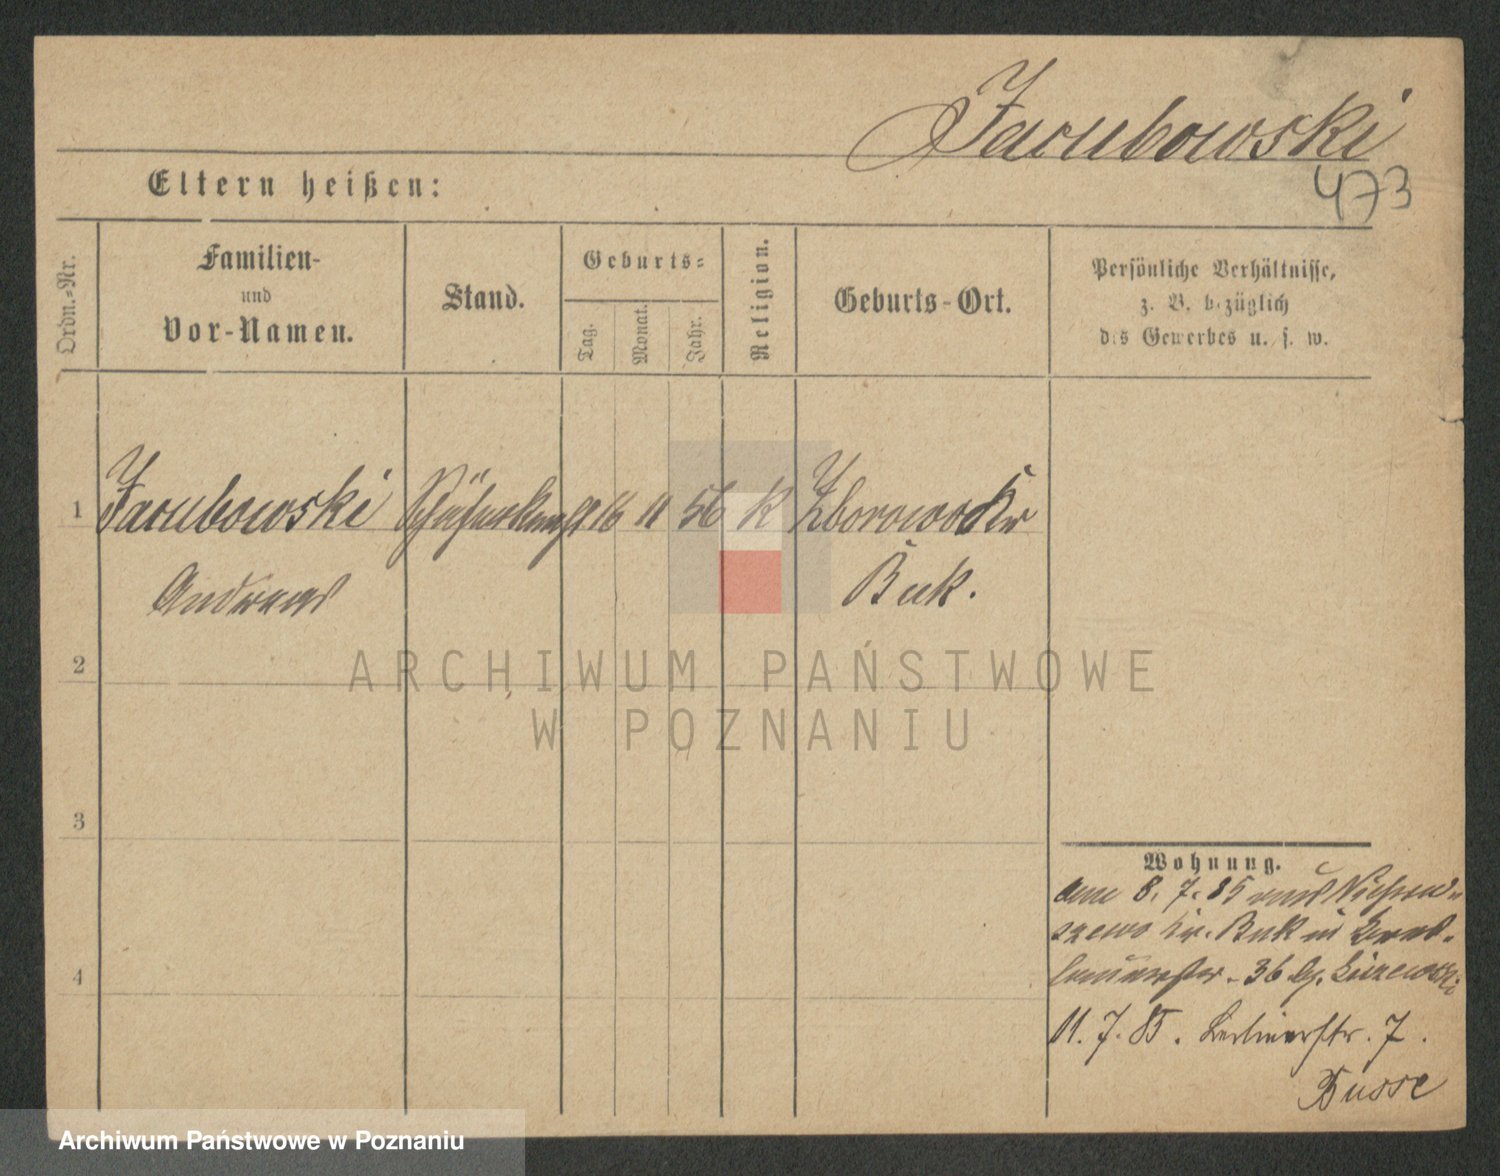 Jacubowski
473
Eltern heißen:
Ordn.-Nr.
Familien-
und
Vor-Namen.
Stand.
Geburts-
Tag.
Monat.
Jahr.
Religion.
Geburts-Ort.
Persönliche Verhältnisse,
z. B. bezüglich
des Gewerbes u. s. w.
1 Jacubowski 16 11 56 K Zborowo Kr
Andreas Buk.
2
3
4
Wohnung.
am 8. 7. 85 aus
szewo Kr. Buk in
36 b/.
11. 7. 85. Berlinerstr. 7.
Busse
ARCHIWUM PAŃSTWOWE
W POZNANIU
Archiwum Państwowe w Poznaniu